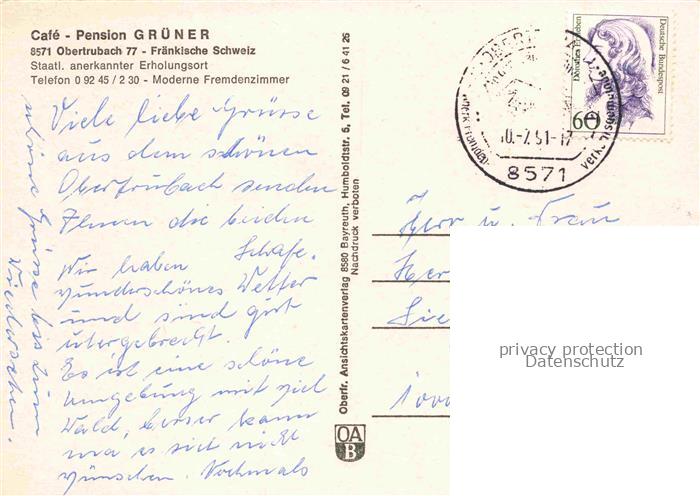 Café - Pension GRÜNER
8571 Obertrubach 77 - Fränkische Schweiz
Staatl. anerkannter Erholungsort
Telefon 0 92 45 / 2 30 - Moderne Fremdenzimmer
Viele liebe Grüsse
aus dem schönen
Obertrubach senden
Ihnen die beiden
Schafe.
Wir haben
wunderschönes Wetter
und sind gut
untergebracht.
Es ist eine schöne
Umgebung mit viel
Wald, besser kann
man es sich nicht
wünschen. Nochmals
schöne Grüsse bis zum
Wiedersehen.
Oberfr. Ansichtskartenverlag 8580 Bayreuth, Humboldtstr. 6, Tel. 09 21 / 6 41 26
Nachdruck verboten
OA
B
8571
60
Dorothea Erxleben
Deutsche Bundespost
Herr u. Frau
Her
Sie
1000
privacy protection
Datenschutz